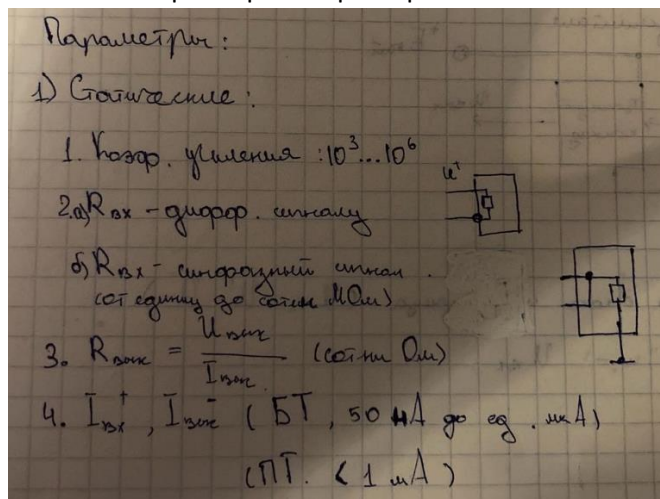 Параметры:
1) Статические:
1. Коэф. усиления : 10³...10⁶
u⁺
2. а) Rвх - дифф. сигналу
б) Rвх - синфазный сигнал.
(от единиц до сотен МОм)
3. Rвых = Uвых / Iвых. (сотни Ом)
4. Iвх⁺, Iвых⁻ ( БТ, 50 нА до ед. мкА)
(ПТ. < 1 мА)